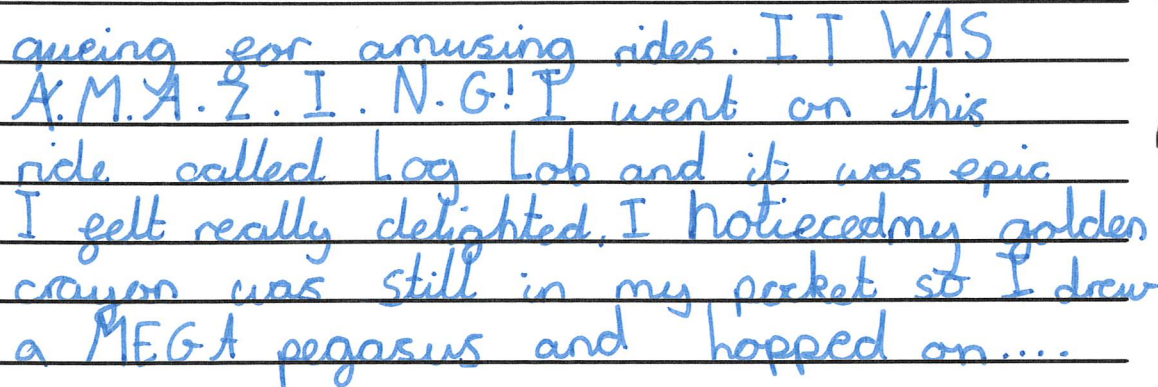 queing for amusing rides. IT WAS
A.M.A.Z.I.N.G! I went on this
ride called Log Lob and it was epic
I felt really delighted. I noticed my golden
crayon was still in my pocket so I drew
a MEGA pegasus and hopped on....